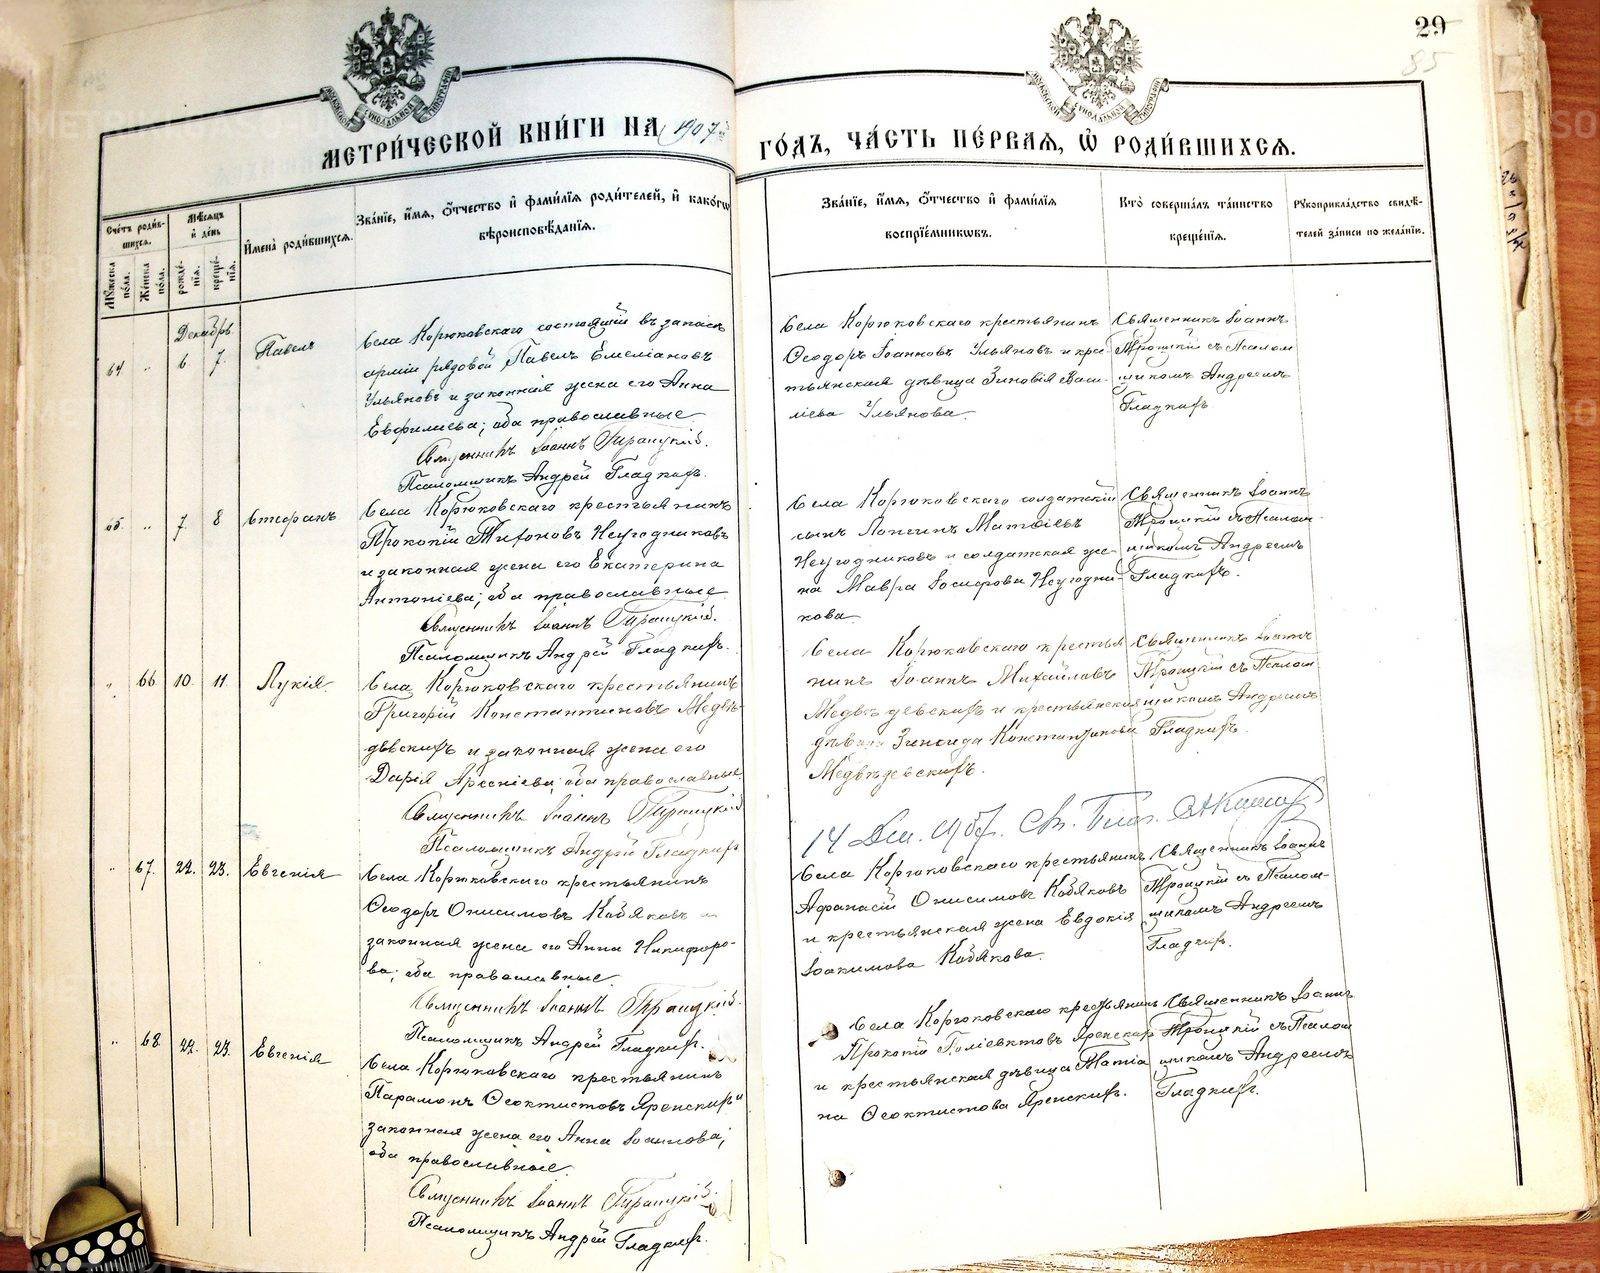 29
85
МЕТРИ́ЧЕСКОЙ КНИ́ГИ НА 1907й
ГО́ДЪ, ЧА́СТЬ ПЕ́РВАѦ, Ѡ҆ РОДИ́ВШИХСѦ.
Сче́тъ роди́в-
шихсѧ.
Мꙋ́жеска по́ла.
Же́нска по́ла.
Мѣ́сѧцъ и҆ де́нь
рожде́-нїѧ.
креще́-нїѧ.
И҆мена̀ роди́вшихсѧ.
Зва́нїе, и҆́мѧ, ѻ҆́тчество и҆ фами́лїѧ роди́телей, и҆ како́гѡ
вѣроисповѣ́данїѧ.
Зва́нїе, и҆́мѧ, ѻ҆́тчество и҆ фами́лїѧ
воспрїе́мникѡвъ.
Кто̀ соверша́лъ та́инство
креще́нїѧ.
Рꙋкоприкла́дство свидѣ́-
телей за́писи по жела́нїю.
Декабрь
64. " 6 7. Павелъ
Села Корюковскаго состоящій въ запасѣ
арміи рядовой Павелъ Емеліановъ
Ульяновъ и законная жена его Анна
Евфиміева; оба православные
Священникъ Іоаннъ Троицкій.
Псаломщикъ Андрей Гладкихъ.
Села Корюковскаго крестьянинъ
Ѳеодоръ Іоанновъ Ульяновъ и крес-
тьянская дѣвица Зиновія Васи-
ліева Ульянова.
Священникъ Іоаннъ
Троицкій съ Псалом
щикомъ Андреемъ
Гладкихъ
65. " 7. 8 Стефанъ
Села Корюковскаго крестьянинъ
Прокопій Тихоновъ Неугодниковъ
и законная жена его Екатерина
Антоніева; оба православные
Священникъ Іоаннъ Троицкій.
Псаломщикъ Андрей Гладкихъ.
Села Корюковскаго солдатскій
сынъ Лонгинъ Матѳіевъ
Неугодниковъ и солдатская же-
на Мавра Іосифова Неугодни-
кова
Священникъ Іоаннъ
Троицкій съ Псалом-
щикомъ Андреемъ
Гладкихъ.
" 66 10. 11. Лукія.
Села Корюковскаго крестьянинъ
Григорій Константиновъ Медвѣ-
дѣвскихъ и законная жена его
Дарія Арсеніева; оба православные.
Священникъ Іоаннъ Троицкій
Псаломщикъ Андрей Гладкихъ
Села Корюковскаго крестья
нинъ Іоаннъ Михайловъ
Медвѣдевскихъ и крестьянская
дѣвица Зинаида Константинова
Медвѣдевскихъ.
Священникъ Іоаннъ
Троицкій съ Псалом
щикомъ Андреемъ
Гладкихъ.
14 Дек. 1907. Св. Благ.
" 67. 22. 23. Евгенія
Села Корюковскаго крестьянинъ
Ѳеодоръ Онисимовъ Кобяковъ и
законная жена его Анна Никифоро-
ва; оба православные.
Священникъ Іоаннъ Троицкій.
Псаломщикъ Андрей Гладкихъ.
Села Корюковскаго крестьянинъ
Афанасій Онисимовъ Кобяковъ
и крестьянская жена Евдокія
Іоакимова Кобякова.
Священникъ Іоаннъ
Троицкій съ Псалом-
щикомъ Андреемъ
Гладкихъ.
" 68. 22. 23. Евгенія
Села Корюковскаго крестьянинъ
Парамонъ Ѳеоктистовъ Яренскихъ и
законная жена его Анна Іоаннова;
оба православные.
Священникъ Іоаннъ Троицкій.
Псаломщикъ Андрей Гладкихъ.
Села Корюковскаго крестьянинъ
Прокопій Поліевктовъ Яренскихъ
и крестьянская дѣвица Матіа
на Ѳеоктистова Яренскихъ.
Священникъ Іоаннъ
Троицкій съ Псалом
щикомъ Андреемъ
Гладкихъ.